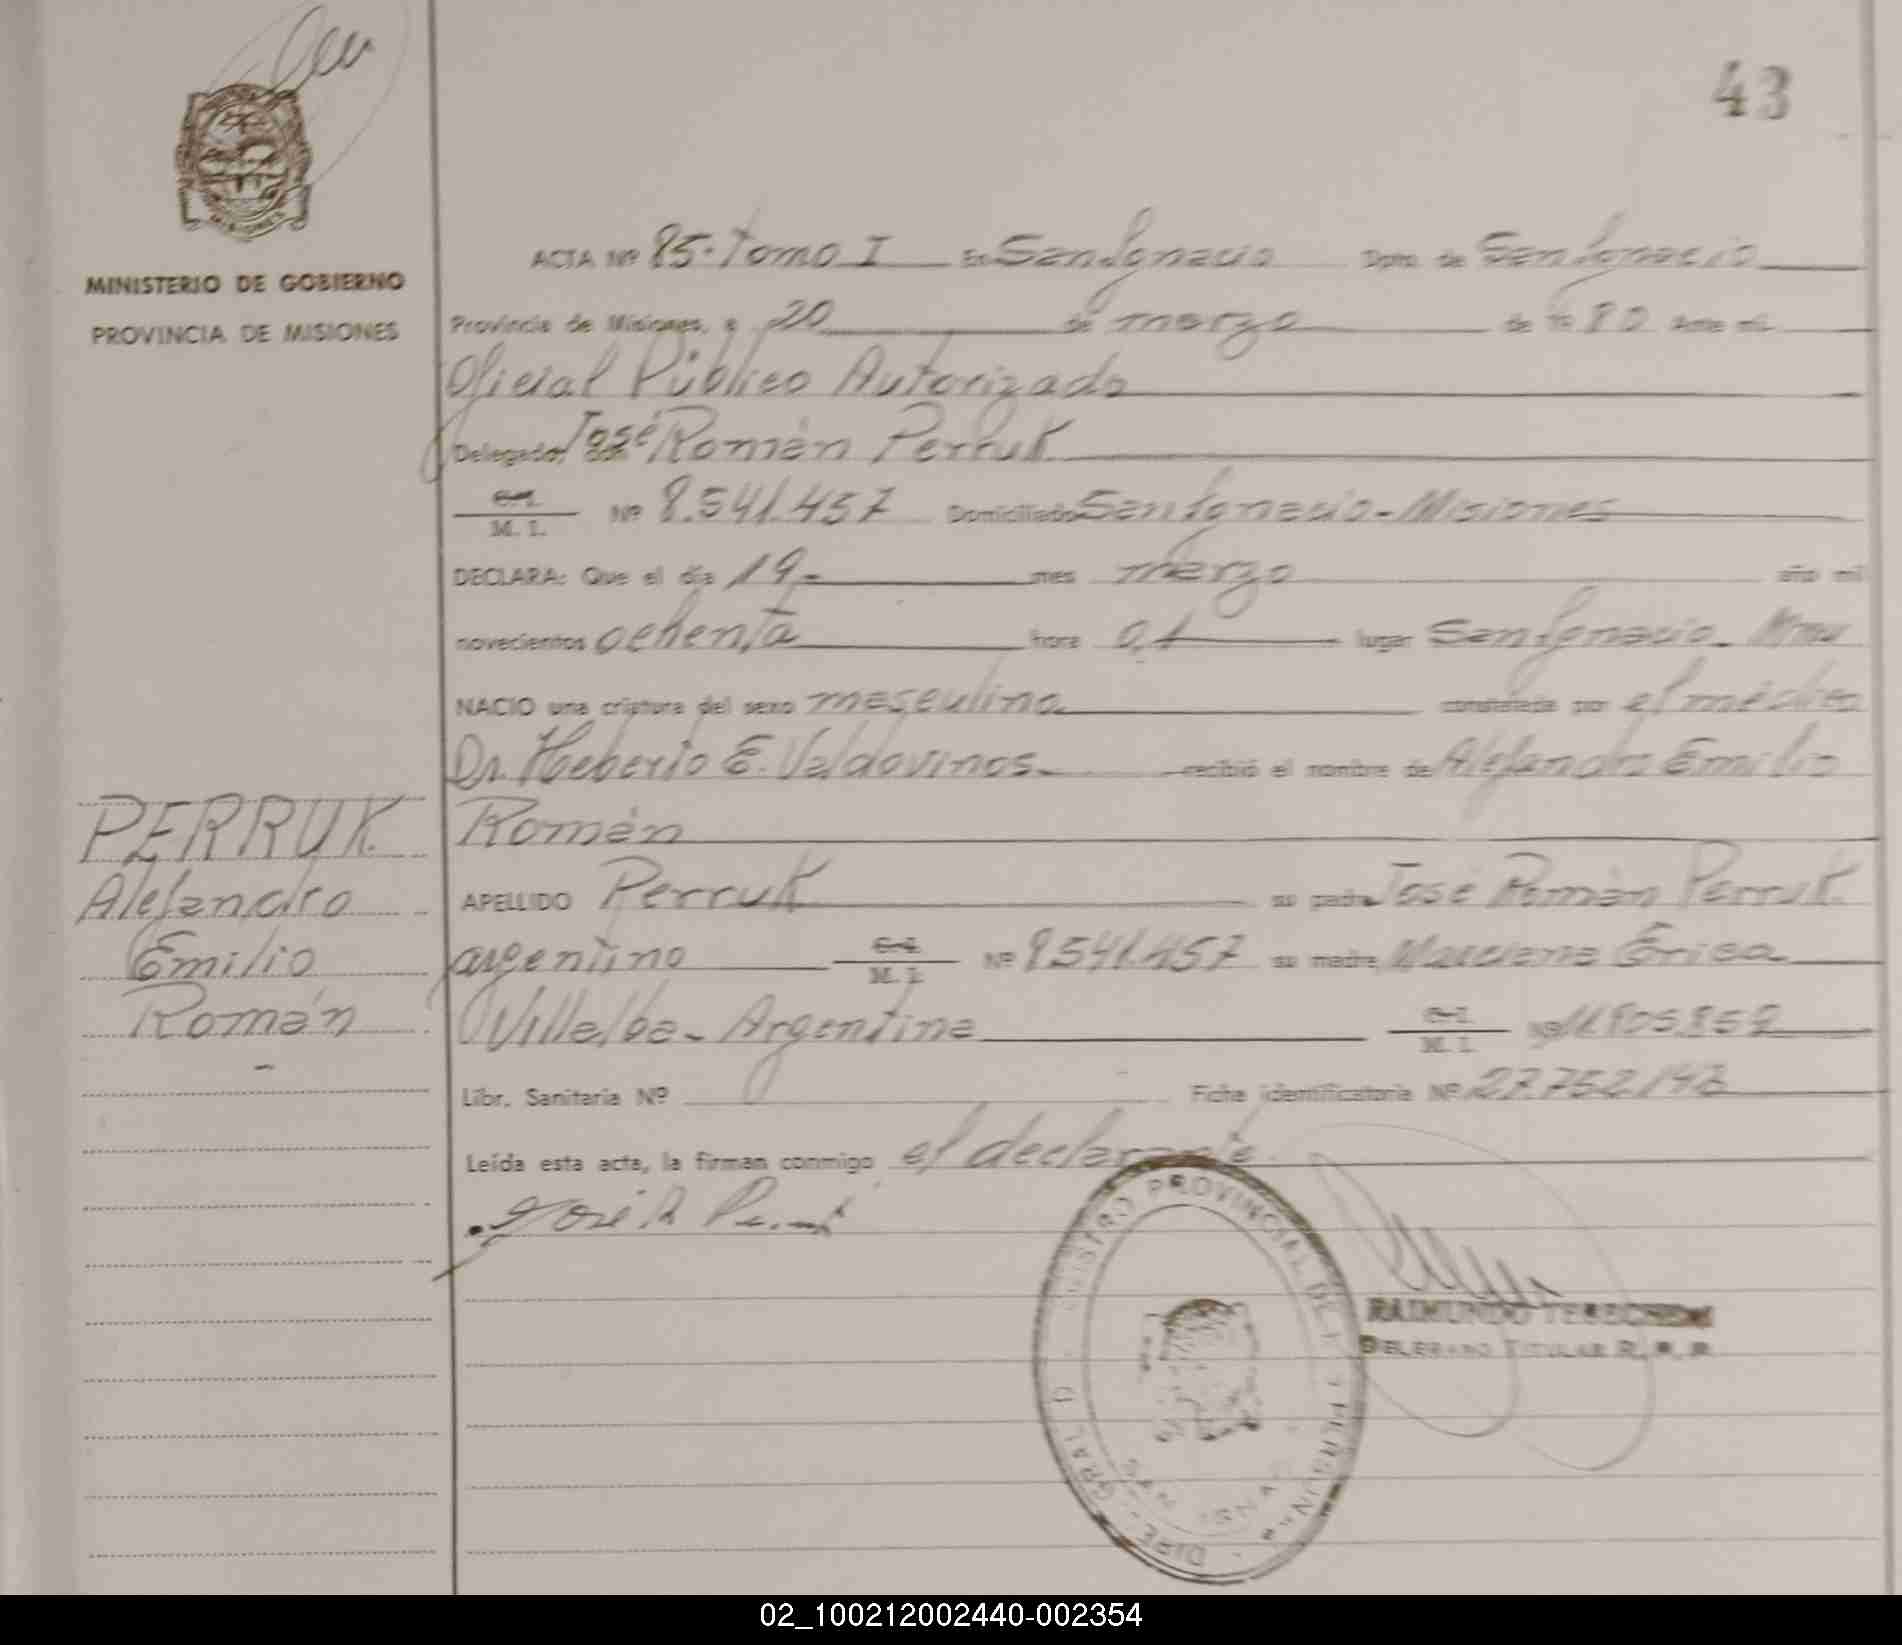 43
MINISTERIO DE GOBIERNO
PROVINCIA DE MISIONES
ACTA Nº 85-Tomo I En San Ignacio Dpto. de San Ignacio
Provincia de Misiones, a 20 de marzo de 1980 Ante mí
Oficial Público Autorizado
Delegado, don José Román Perruk
C.I. M. I. Nº 8.541.457 Domiciliado San Ignacio-Misiones
DECLARA: Que el día 19- mes marzo año mil
novecientos ochenta hora 0,1 lugar San Ignacio-
NACIO una criatura del sexo masculino constatada por el médico
Dr. Heberto E. Valdovinos- recibió el nombre de Alejandro Emilio
Román
PERRUK
Alejandro
Emilio
Román
-
APELLIDO Perruk su padre José Román Perruk
argentino C.I. M. I. Nº 8541.457 su madre Marciana Erica
Villalba- Argentina C.I. M. I. Nº
Libr. Sanitaria Nº Ficha identificatoria Nº 27.752.142
Leída esta acta, la firman conmigo el declarante.
José R Perruk
REGISTRO PROVINCIAL DE LAS PERSONAS - DIRE. GRAL. D
SAN IGNACIO
RAIMUNDO
DELEGADO TITULAR R. P. P.
02_100212002440-002354